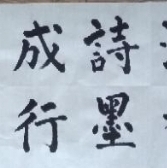 詩墨
成行